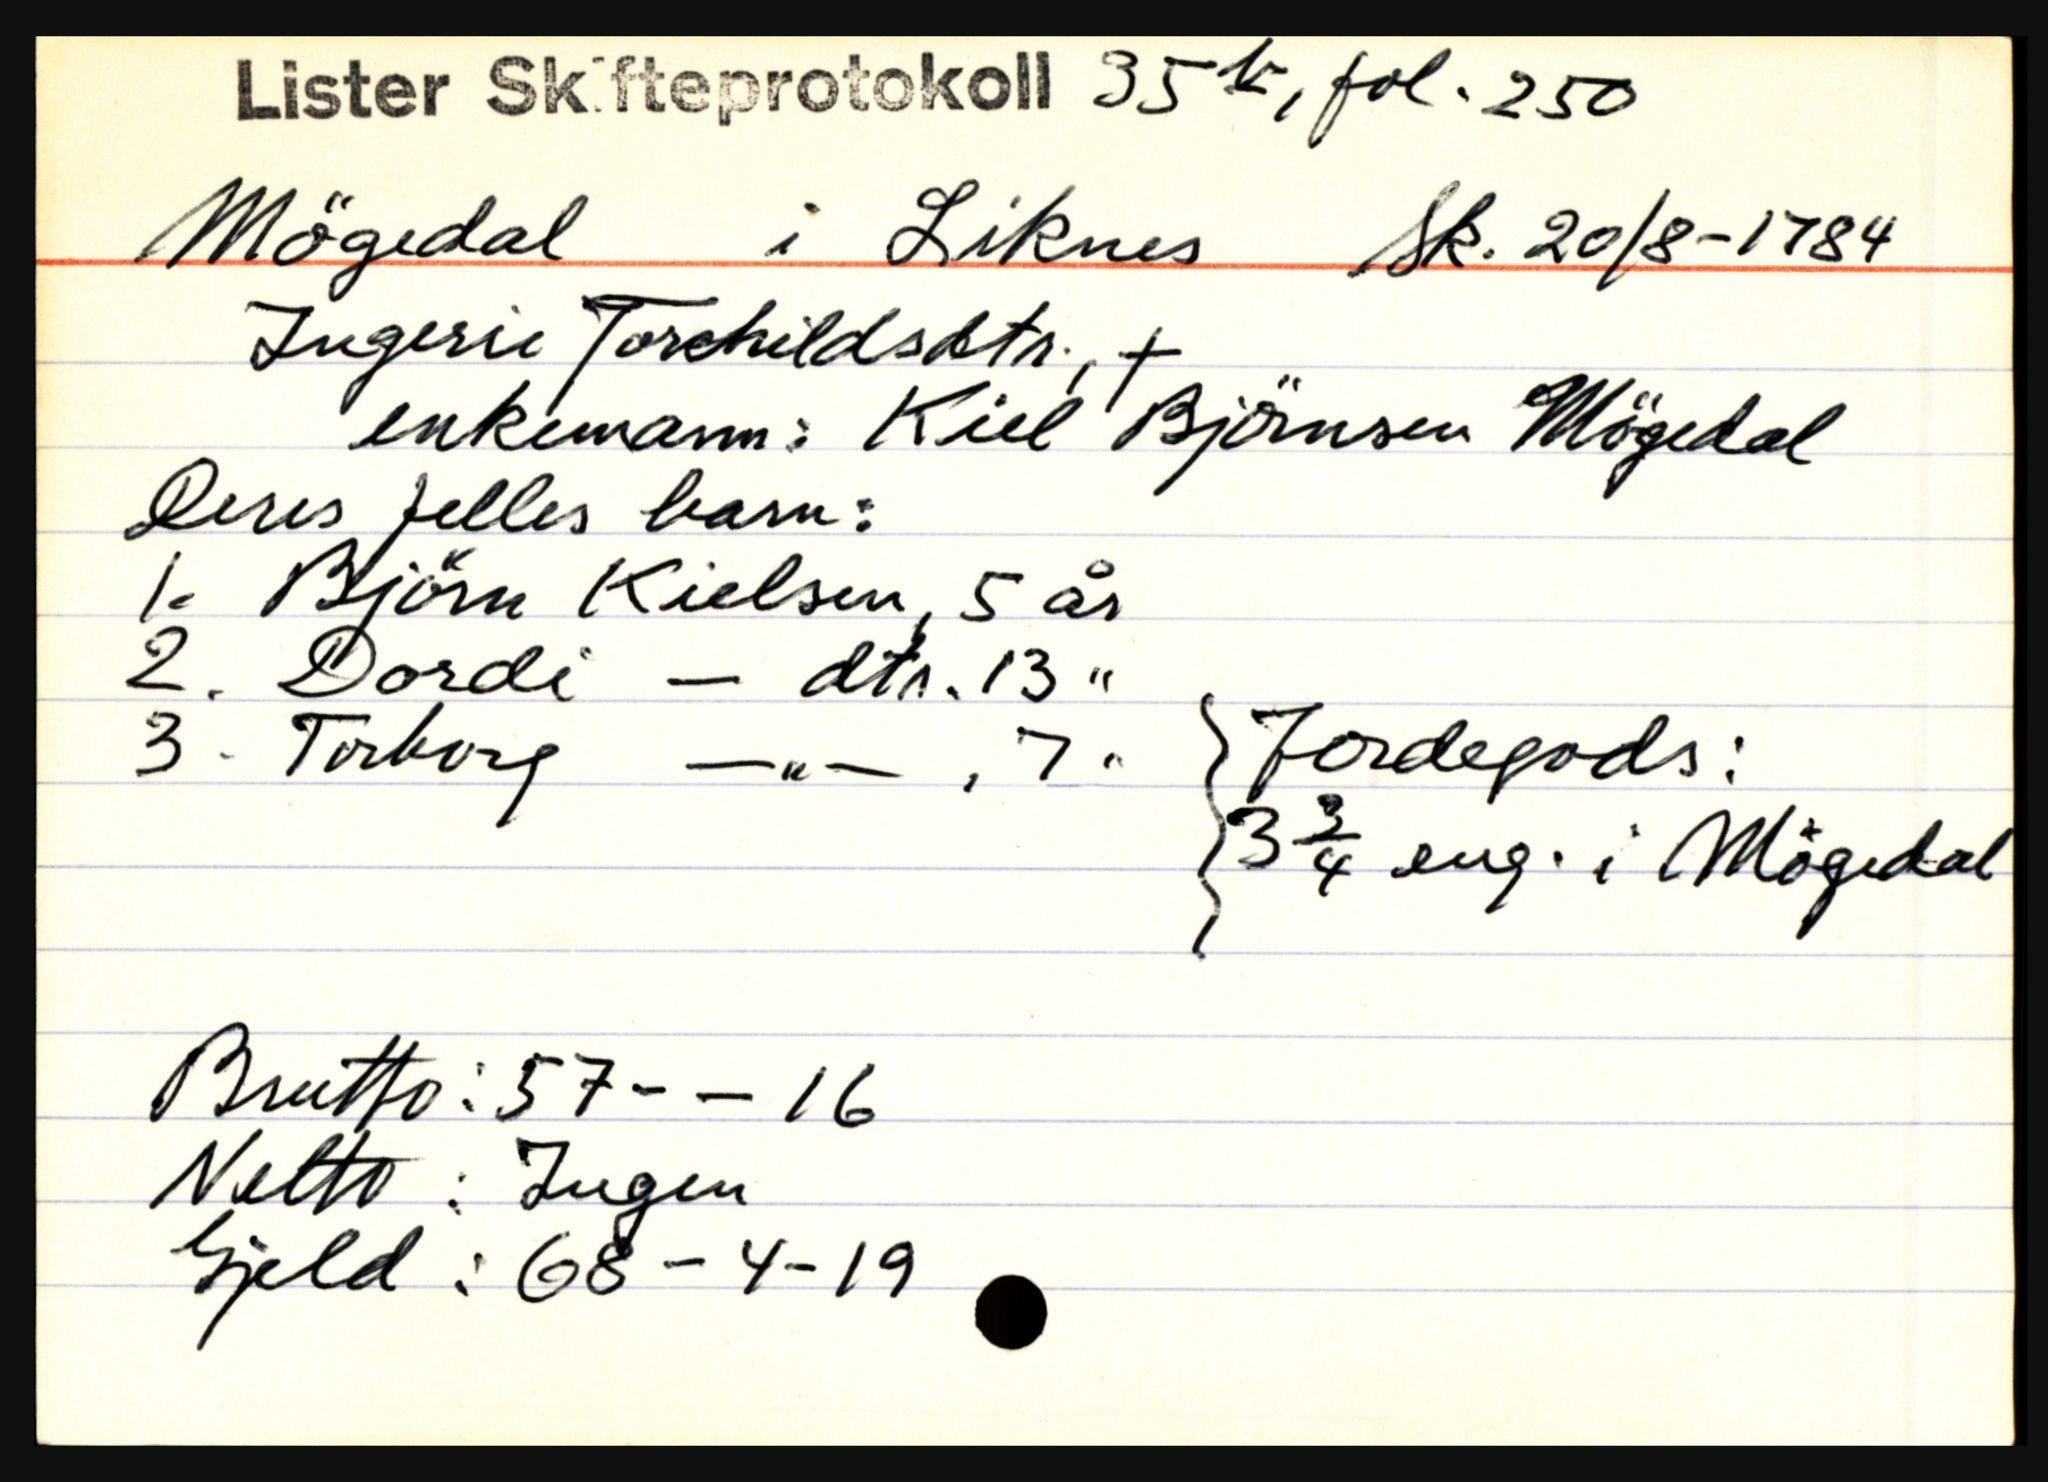 Lister Skifteprotokoll 35b, fol. 250
Mögedal i Liknes Sk. 20/8-1784
Ingerie Torchildsdtr., +
enkemann: Kiel Björnsen Mögedal
Deres felles barn:
1. Björn Kielsen, 5 år
2. Dordi — dtr. 13 "
3. Torborg —"— , 7 "
Jordegods:
3 3/4 eng. i Mögedal
Brutto: 57 - — 16
Netto : Ingen
Gjeld : 68 - 4 - 19